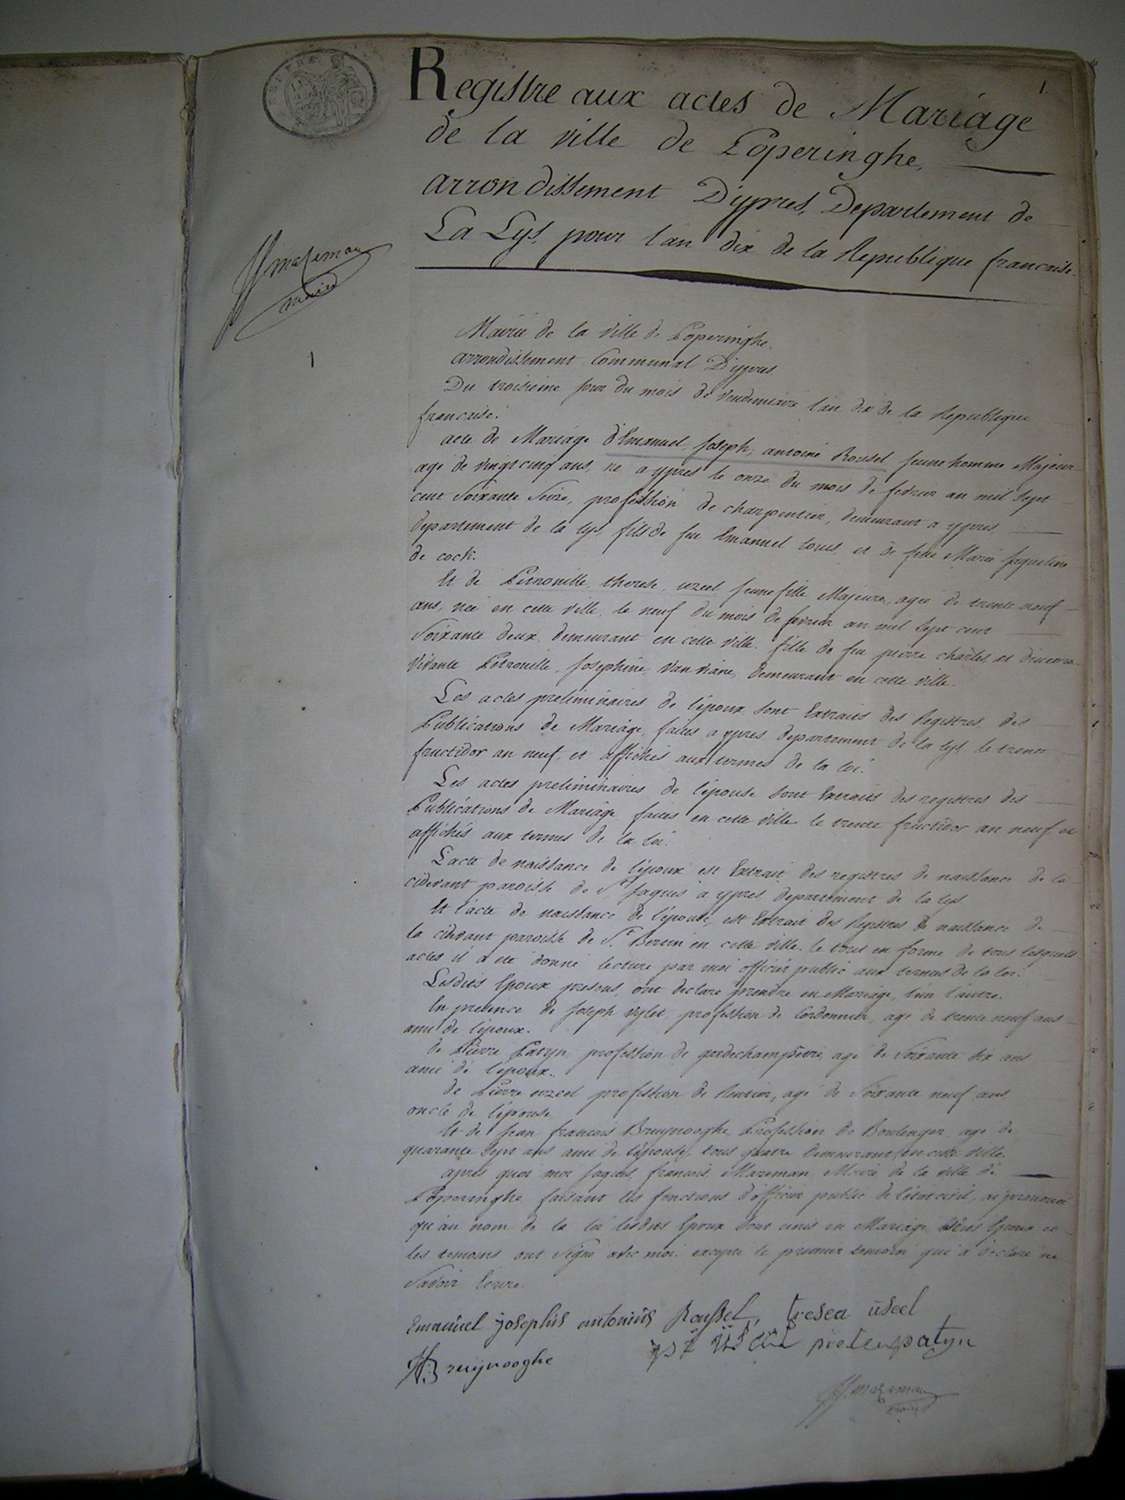 1
Registre aux actes de Mariage
de la ville de Poperinghe,
arrondissement D'ypres, Departement de
La Lys, pour l'an dix de la Republique francaise.
JJ mazeman
maire
1
Mairie de la ville de Poperinghe.
arrondissement Communal D'ypres
Du troisieme jour du mois de Vendemiaire l'an dix de la Republique
francaise.
acte de Mariage d'Emanuel Joseph, antoine Roussel jeune homme Majeur
agé de vingt cinq ans, né a ypres le onze du mois de fevrier an mil sept
cent Soixante Seize, profession de charpentier, demeurant a ypres,
departement de la lys, fils de feu Emanuel louis, et de feue Marie Jaqueline
de cock.
Et de Petronille, therese, uzeel jeune fille Majeure, agée de trente neuf
ans, née en cette ville, le neuf du mois de fevrier an mil sept cent
Soixante deux, demeurant en cette ville, fille de feu pierre charles, et d'encore
vivante Petronille, Josephine, Van demeurant en cette ville.
Les actes preliminaires de l'époux sont Extraits des Registres des
Publications de Mariage, faites a ypres departement de la lys le trente
fructidor an neuf, et affichés aux termes de la loi.
Les actes preliminaires de l'épouse sont Extraits des registres des
Publications de Mariage faites en cette ville le trente fructidor an neuf et
affichés aux termes de la loi.
L'acte de naissance de l'époux est Extrait des registres de naissance de la
cidevant paroisse de St Jaques a ypres departement de la lys
Et l'acte de naissance de l'épouse, est Extrait des Registres de naissance de
la cidevant paroisse de St Bertin en cette ville, le tout en forme de tous lesquels
actes il a été donné lecture par moi officier public aux termes de la loi.
Lesdits Epoux presens, ont declaré prendre en Mariage, l'un l'autre.
En presence de Joseph profession de Cordonnier, agé de trente neuf ans
ami de l'époux.
de Pierre Patyn, profession de gardechampetre, agé de Soixante dix ans
ami de l'époux.
de Pierre uzeel profession de Rentier, agé de Soixante neuf ans
oncle de l'épouse
Et de Jean francois Bruynooghe, Profession de Boulenger, agé de
quarante Sept ans ami de l'épouse, tous quatre demeurant en cette ville.
après quoi moi Jaques, francois, Mazeman, Maire de la ville de
Poperinghe, faisant les fonctions d'officier public de l'état civil, ai prononcé
qu'au nom de la loi lesdits Epoux sont unis en Mariage, Epoux et
les temoins ont Signé avec moi. excepté le premier temoin qui a declaré ne
Savoir Ecrire
Emanuel josephus antonius Roussel, tresea useel
JF Bruynooghe pieter patyn
JJ mazeman
maire